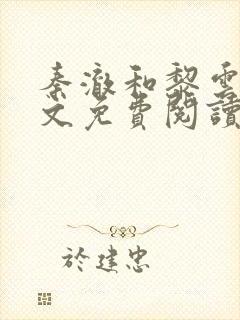 秦澈和黎雲
文免費閱讀
於建忠